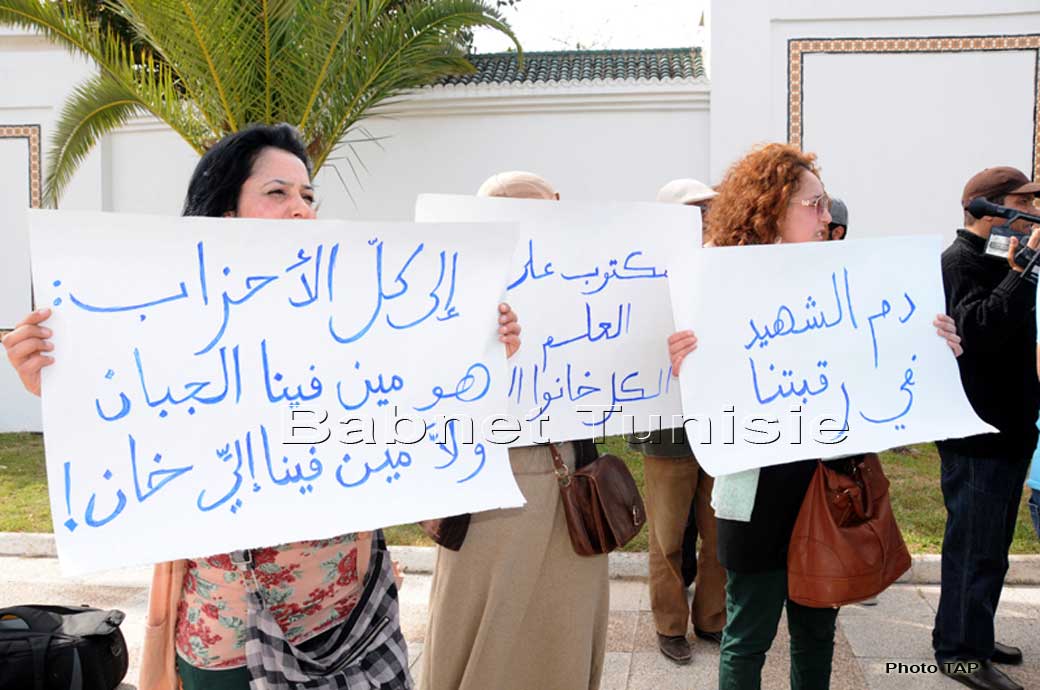 إلى كلّ الأحزاب:
هو مين فينا الجبان
ولاّ مين فينا إليّ خان!
مكتوب على
العلم
الكل خانوا
دم الشهيد
في رقبتنا
Babnet Tunisie
Photo TAP